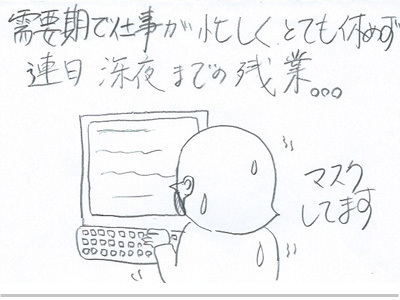 需要期で仕事が忙しく、とても休めず
連日深夜までの残業...
マスク
してます